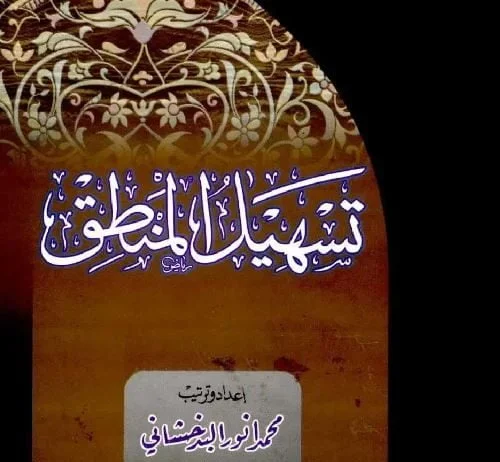 تسهيل المناطق
رياض
إعداد وترتيب
محمد انور البدخشاني